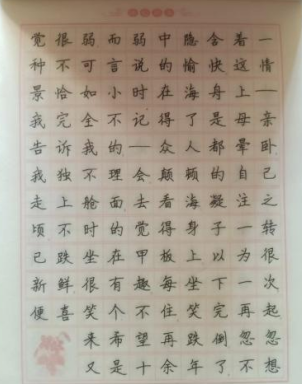 觉很弱而弱中隐含着一
种不可言说的愉快这情
景恰如小时在海舟上—
我完全不记得了是母亲
告诉我的—众人都晕卧
我独不理会颠顿的自己
走上舱面去看海凝注之
顷不时的觉得身子一转
已跌坐在甲板上以为很
新鲜很有趣每坐下一次
便喜笑个不住笑完再起
来希望再跌倒忽忽
又是十余年了不想